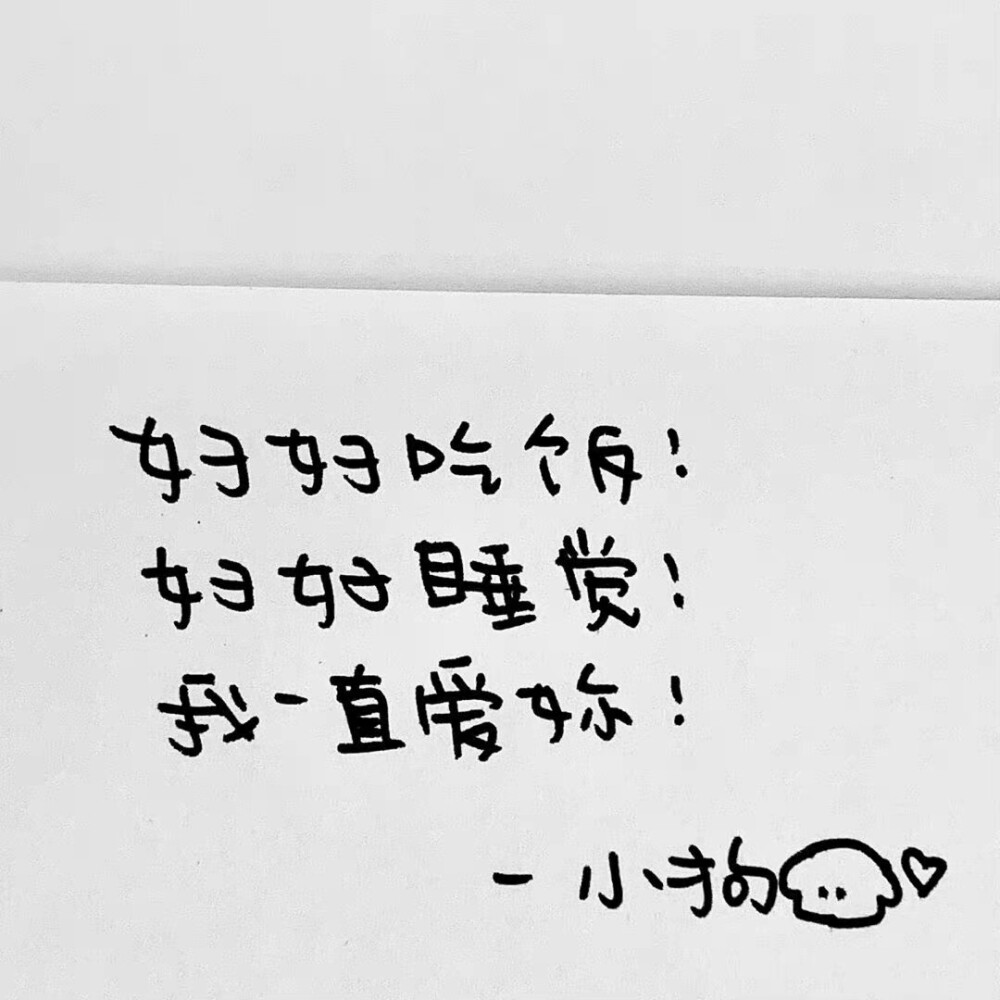 好好吃饭！
好好睡觉！
我一直爱妳！
- 小狗